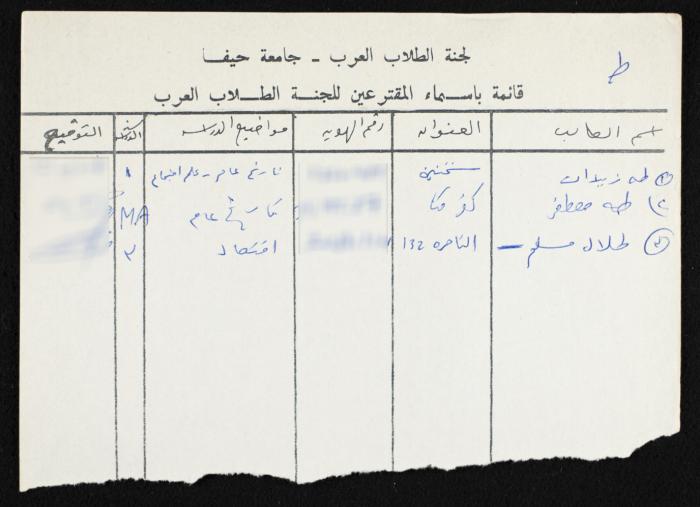 لجنة الطلاب العرب - جامعة حيفا
ط
قائمة باسماء المقترعين للجنة الطلاب العرب
اسم الطالب العنوان رقم الهوية مواضيع الدراسه السنة التوقيع
١ طه زيدات سخنين تاريخ عام - علم اجتماع ١
٢ طه مصطفى كفر كنا تاريخ عام MA
٣ طلال مسلم - الناصره 132 اقتصاد ٣